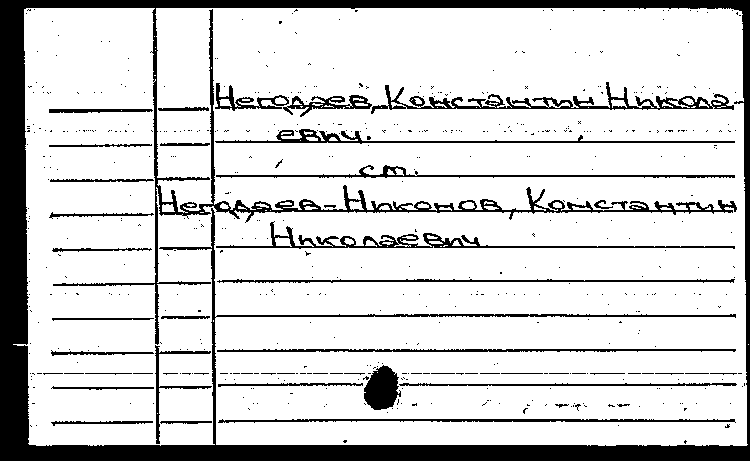 Негодаев, Константин Никола-
евич.
ст.
Негодаев-Никонов, Константин
Николаевич